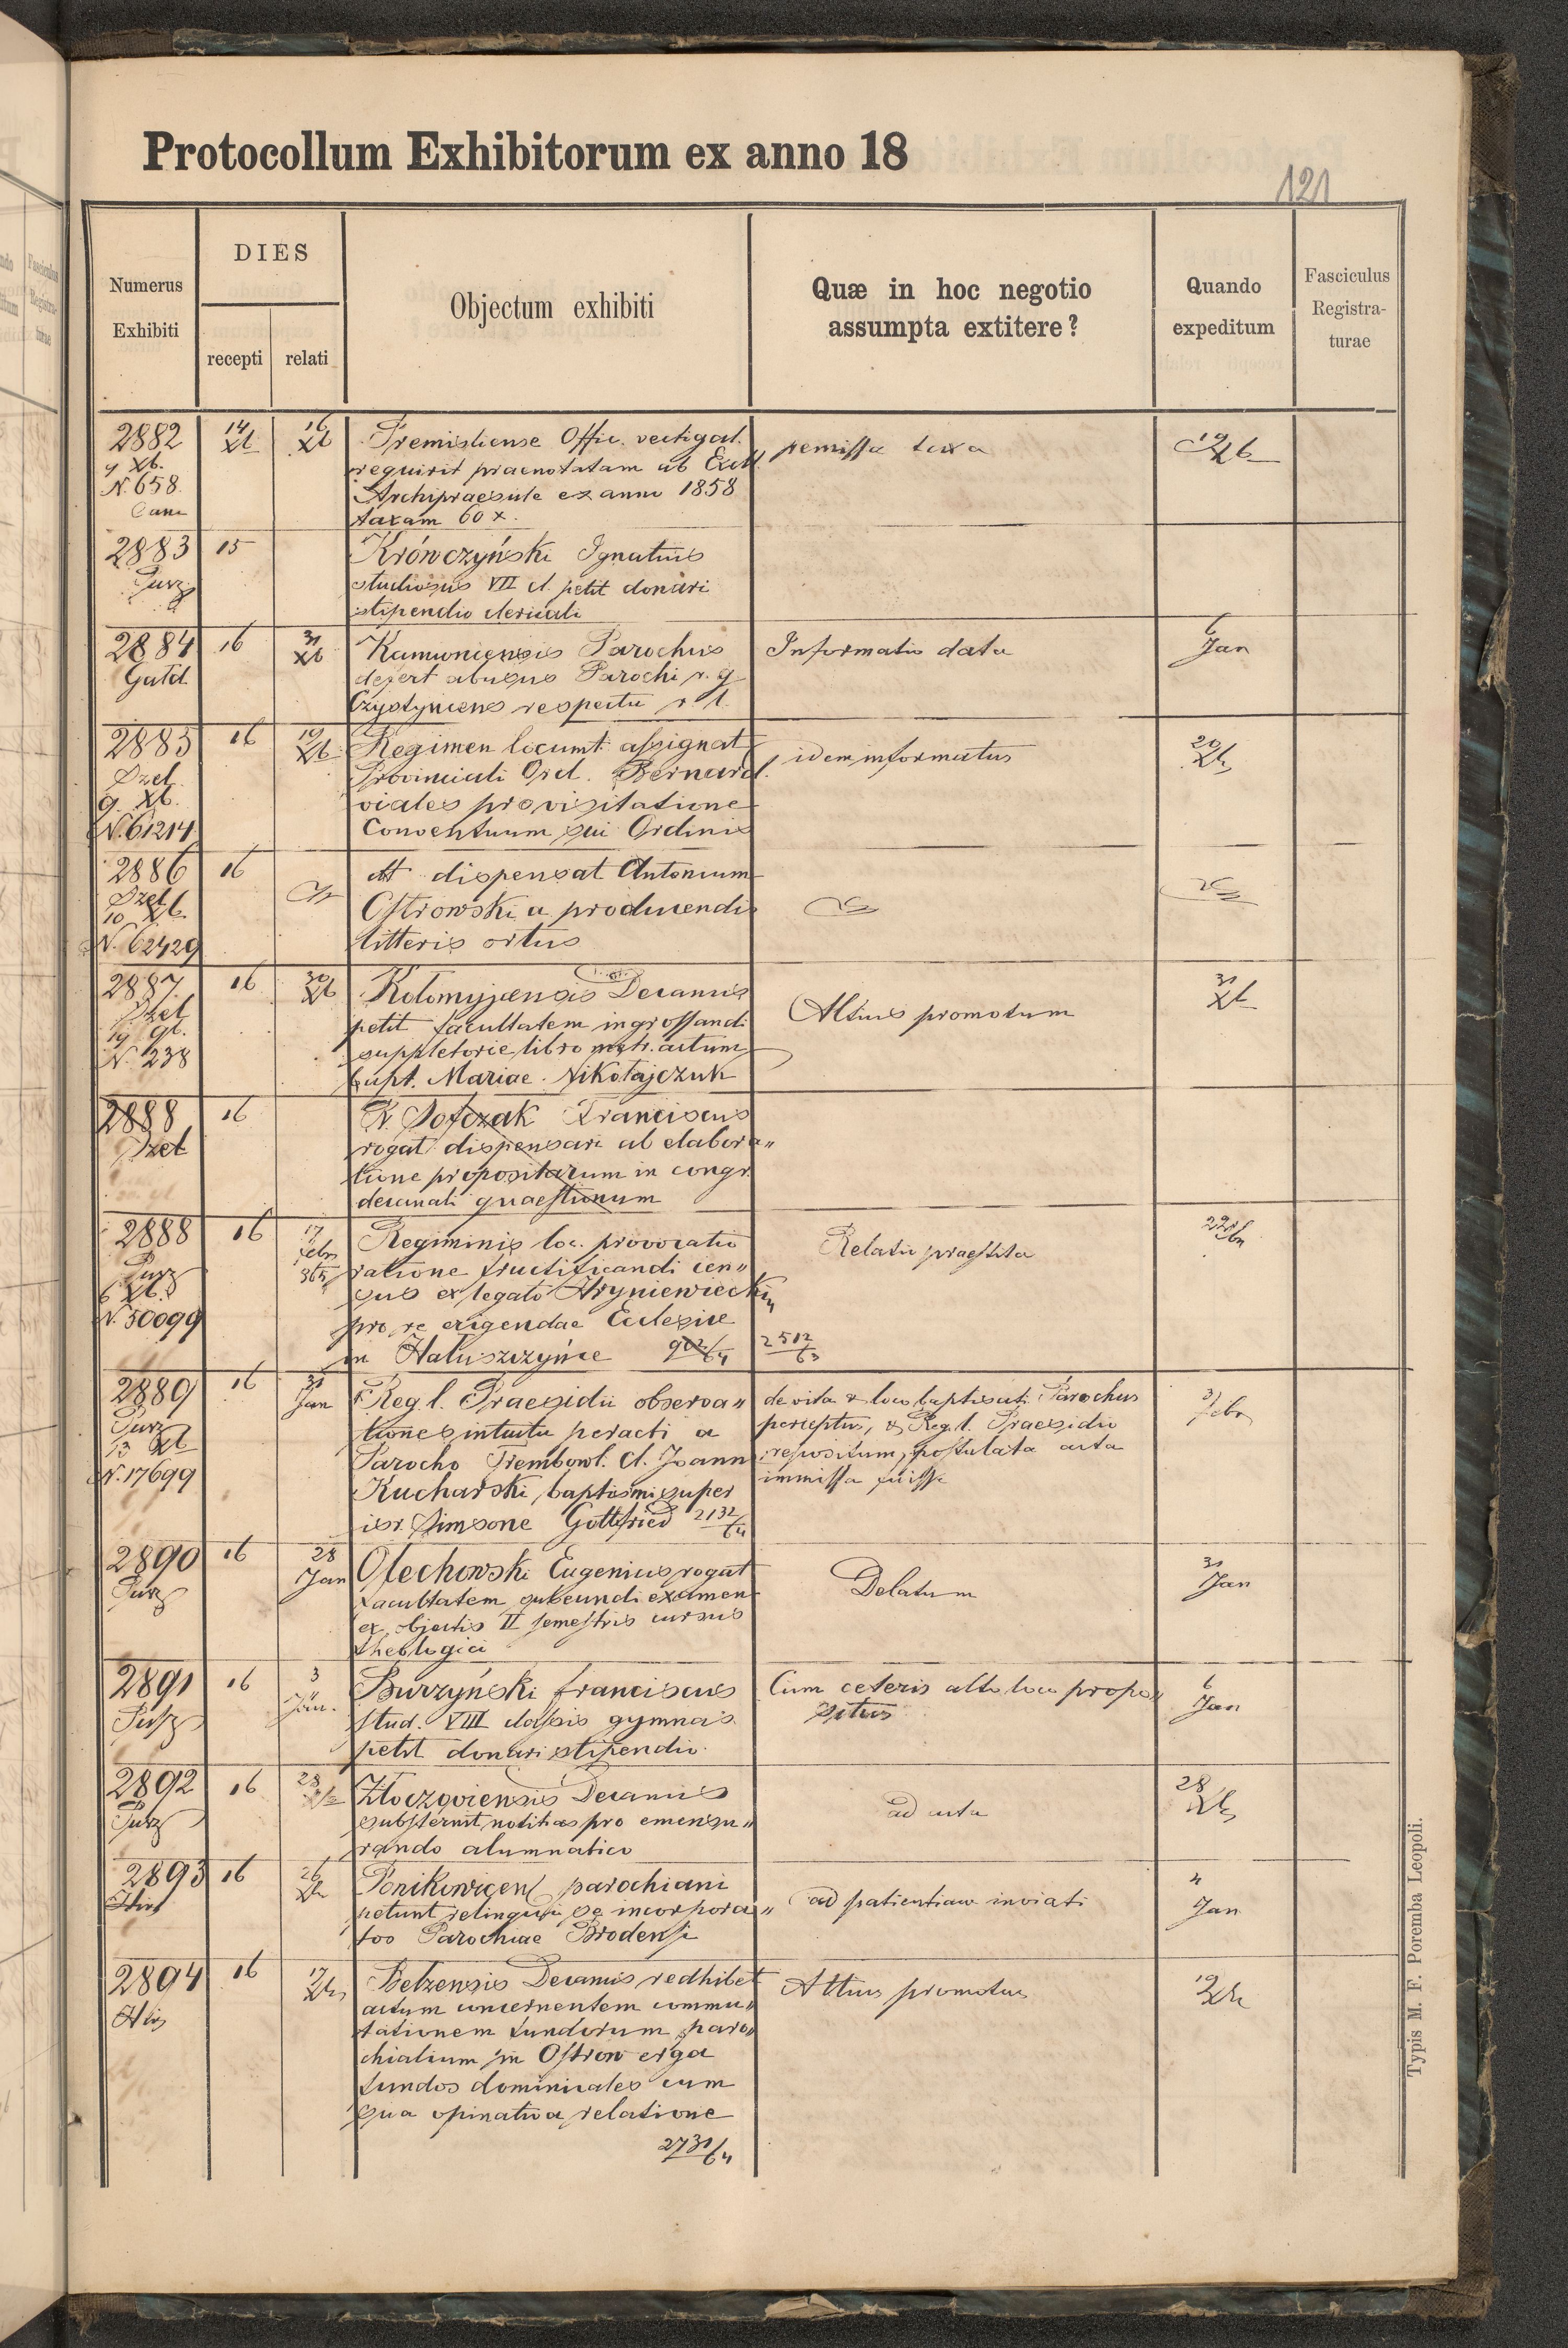 Protocollum Exhibitorum ex anno 18
121
Numerus Exhibiti
DIES
recepti
relati
Objectum exhibiti
Quæ in hoc negotio assumpta extitere?
Quando expeditum
Fasciculus Registra-turae
2882 14 Xb 16 Xb Premisliense Offic. vectigal. remissa taxa 19 Xb
9 Xb. requirit praenotatam ab Excll.
N. 658. Archipraesule ex anno 1858
Cam taxam 60 x.
2883 15 Krówczyński Ignatius
Purz studiosus VII cl. petit donari
stipendio clericali
2884 16 31 Xb Kamionensis Parochus Informatio data 6 Jan
Gatd. defert abusus Parochi r. g.
Czystyniens respectu r. l.
2885 16 19 Xb Regimen locumt. assignat idem informatus 20 Xb
Dzet Provinciali Ord. Bernard.
9. Xb. viales pro visitatione
N. 61214 Conventuum sui Ordinis
2886 16 dispensat Antonium
Dzet Ostrowski a producendis
10 Xb. litteris ortus
N. 62429
2887. 16 30 Xb Kołomyjensis Decanus Altius promotum 31 Xb
Dzet petit facultatem ingrossandi
19 suppletorie libro metr. actum
N. 238 bapt. Mariae Nikołajczuk
2888 16 Franciscus
Dzet rogat dispensari ab elabora„
tione propositarum in congr.
decanali quaestionum
2888 16 17 febr 365 Regiminis loc. provocatio Relatio praestita 22 febr
Purz ratione fructificandi cen„
6 Xb. sus ex legato Hryniewieckim
N. 50099 pro re erigendae Ecclesiae
in Hałuszczyńce 902/64 2502/63
2889 16 31 Jan Reg. l. Praesidii observa„ de vita & loco baptisati Parochus 3/ febr
Purz tiones intuitu peracti a perceptus, & Reg. l. Praesidio
13 Xb Parocho Trembowl. cl. Joann repositum, postulata acta
N. 17699 Kucharski, baptismi super immissa fuisse
isr. Simsone Gottfried 2132/64
2890 16 28 Jan Olechowski Eugenius rogat Delatum 31 Jan
Purz facultatem subeundi examen
ex objectis II semestris cursus
theologici
2891 16 3 Jan. Burzyński franciscus Cum ceteris alto loco propo„ 6 Jan
Purz stud. VIII classis gymnas. situs
petit donari stipendio.
2892 16 28 Złoczoviensis Decanus ad acta 28 Xb
Purz substernit notitias pro emensu„
rando alumnatico
2893 16 26 Xb Ponikovicens parochiani ad patientiam inviati 4 Jan
petunt relinqui se incorpora„
tos Parochiae Brodensi
2894 16 17 Xb Betzensis Decanus redhibet Altius promotus 19 Xb
actum concernentem commu„
tationem fundorum paro„
chialium in Ostrow erga
fundos dominicales cum
sua opinativa relatione
2731/64
Typis M. F. Poremba Leopoli.